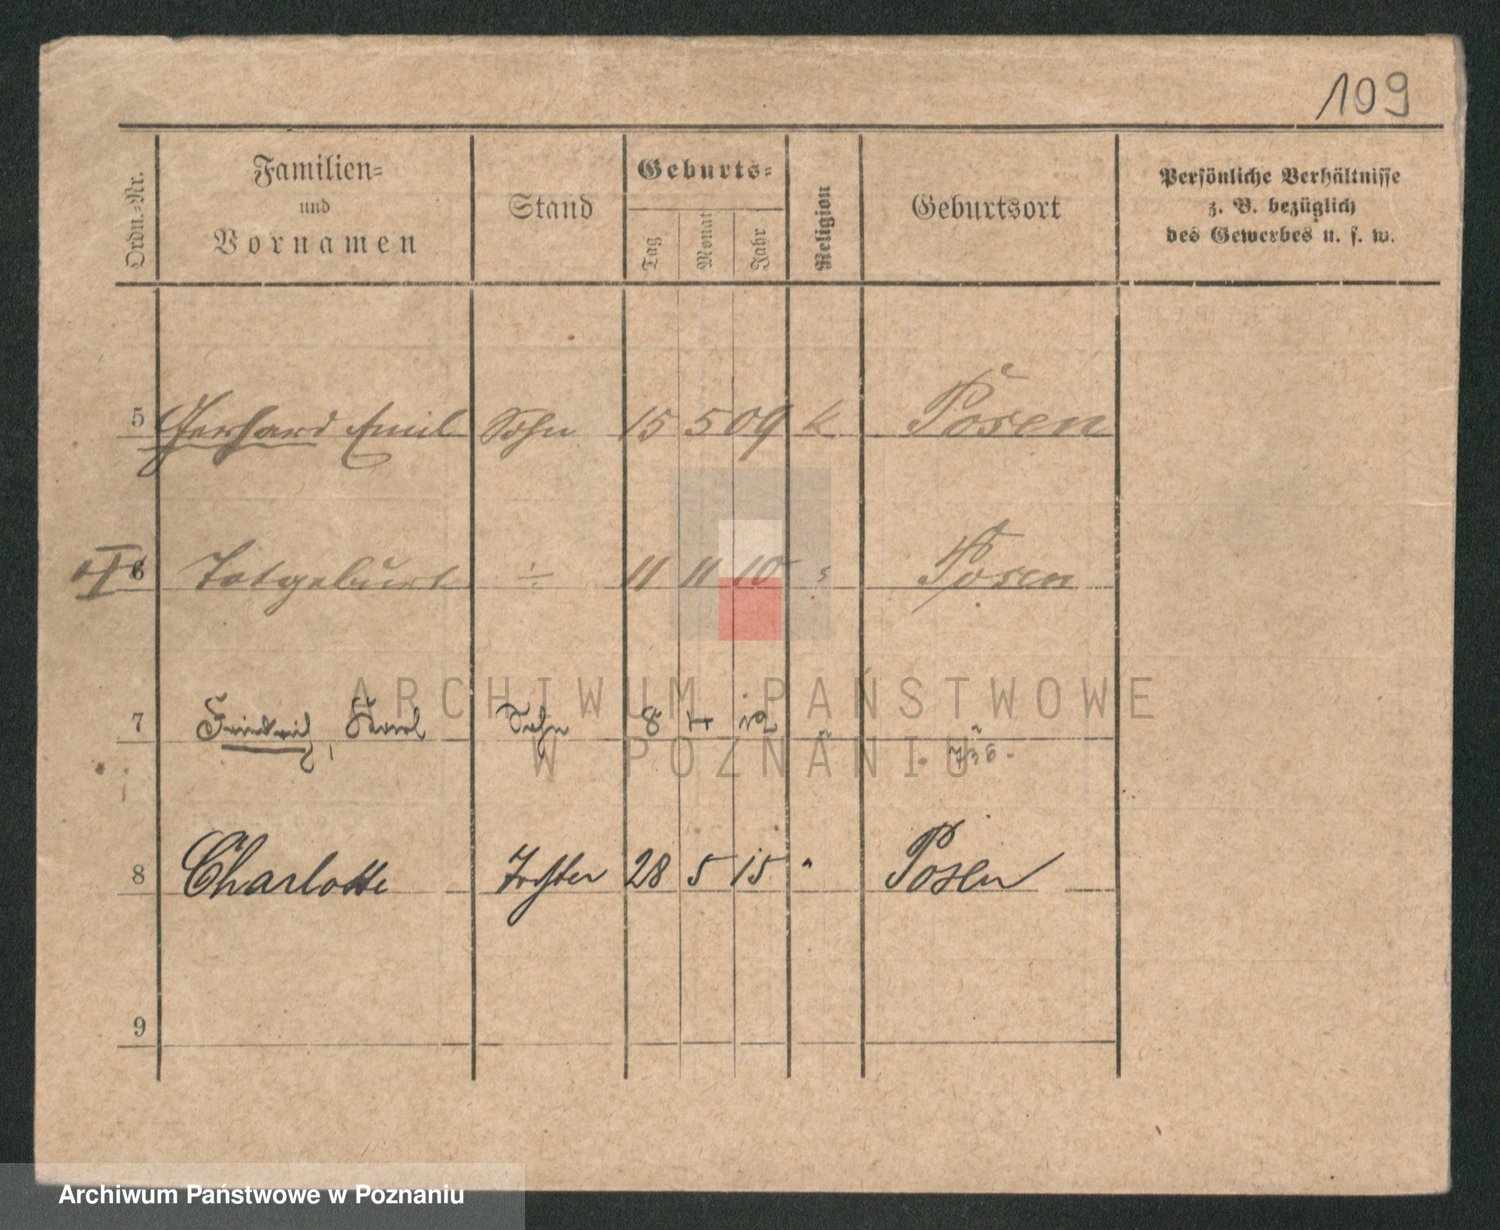 109
Ordn.-Nr.
Familien-
und
Vornamen
Stand
Geburts-
Tag
Monat
Jahr
Religion
Geburtsort
Persönliche Verhältnisse
z. B. bezüglich
des Gewerbes u. s. w.
5 Gerhard Emil Sohn 15 5 09 k Posen
6 Totgeburt ÷ 11 11 10 " Posen
7 Friedrich, Karl Sohn 8 4 12 " "
8 Charlotte Tochter 28 5 15 " Posen
9
ARCHIWUM PAŃSTWOWE
W POZNANIU
Archiwum Państwowe w Poznaniu